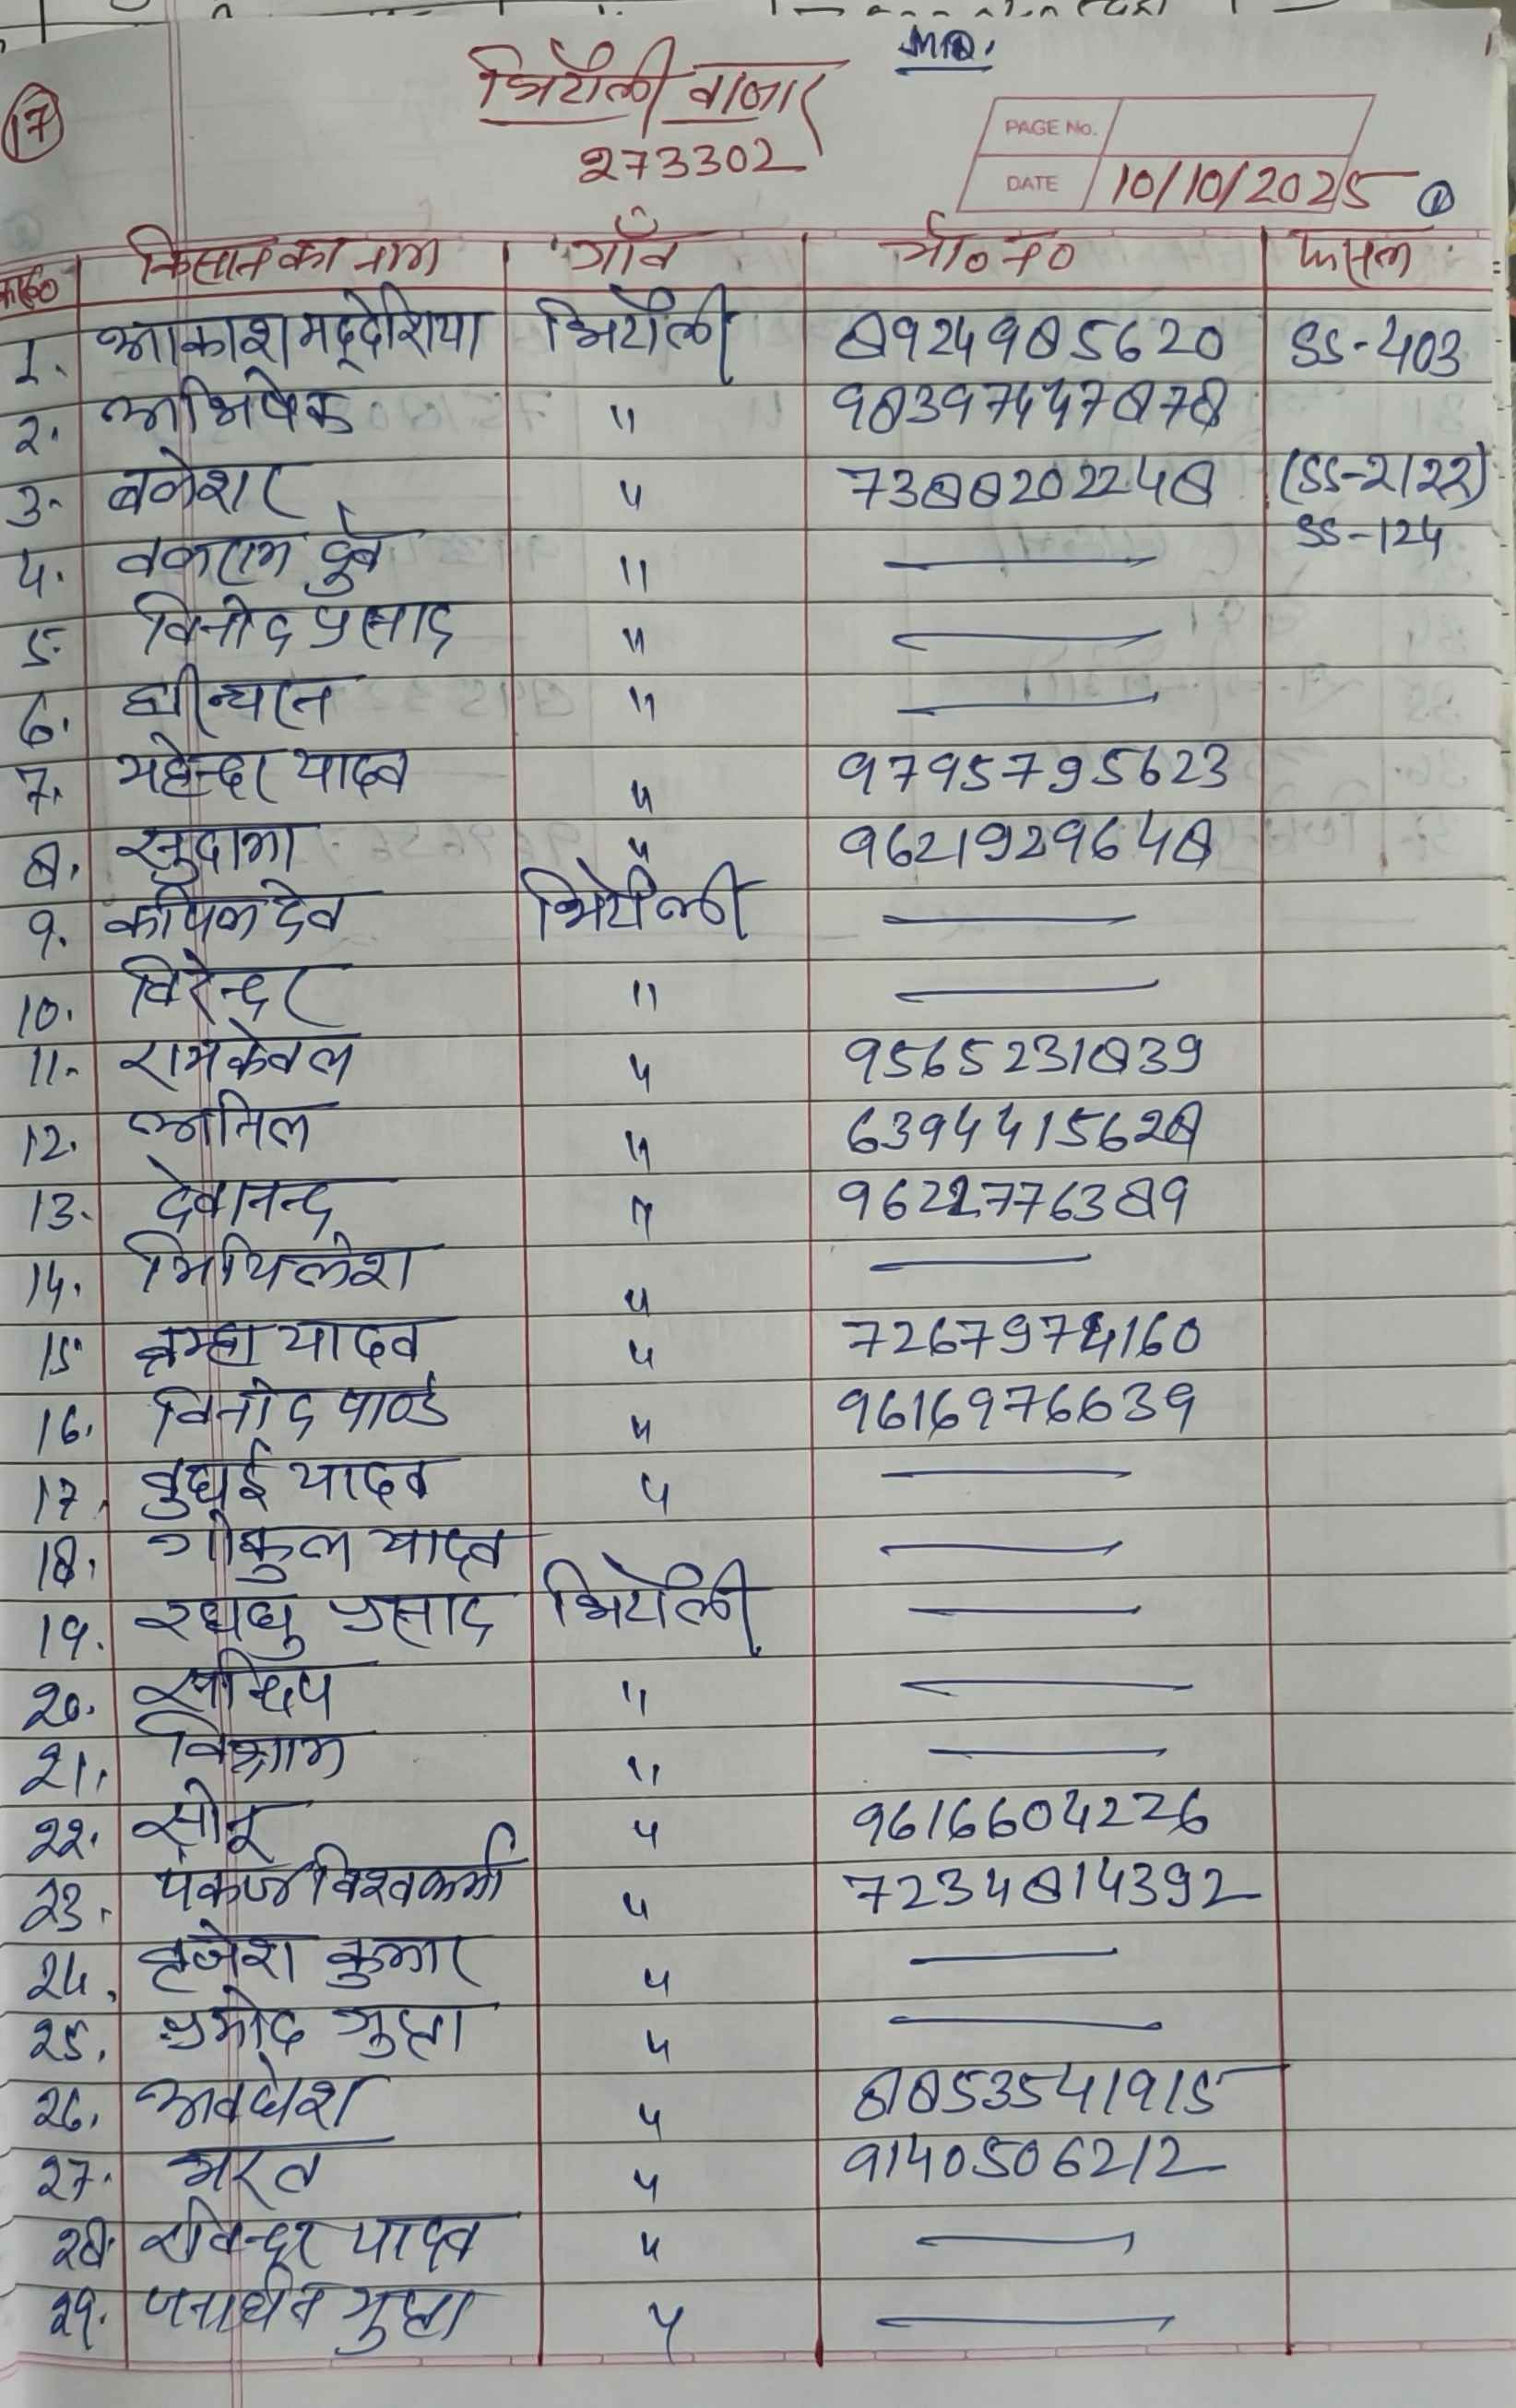 MIQ.
17
भिटौली बाजार
273302
PAGE No.
DATE 10/10/2025 ①
क्र०सं० किसान का नाम गाँव मो०न० फसल
1. आकाश मद्देशिया भिटौली 8924985620 SS-403
2. अभिषेक " 98397447878
3. बकेशर " 7388202248 (SS-2122)
SS-124
4. बलराम दुबे " —
5. विनोद प्रसाद " —
6. " —
7. महेन्द्रर यादव " 9795795623
8. सुदामा " 9621929648
9. कपिलदेव भिटौली —
10. विरेन्द्रर " —
11. रामकेवल " 9565231839
12. अनिल " 6394415628
13. देवानन्द " 9622776389
14. मिथिलेश " —
15. ब्रम्हा यादव " 7267974160
16. विनोद पाण्डे " 9616976639
17. बुधई यादव " —
18. गोकुल यादव —
19. रघु प्रसाद भिटौली —
20. सन्दिप " —
21. विश्राम " —
22. सोनू " 9616604226
23. पंकज विश्वकर्मा " 7234814392
24. बृजेश कुमार " —
25. प्रमोद गुप्ता " —
26. अवधेश " 8853541915
27. भरत " 9140506212
28. रविन्द्रर यादव " —
29. जनार्धन गुप्ता " —